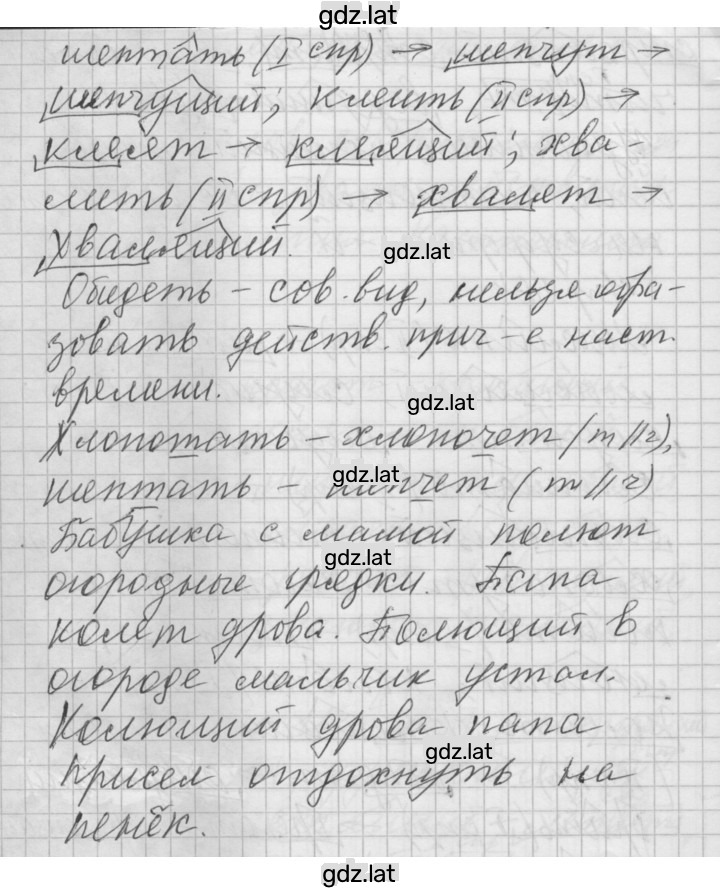 gdz.lat
шептать (I спр) → шепчут →
шепчущий; клеить (II спр) →
клеят → клеящий; хва-
лить (II спр) → хвалят →
хвалящий.
gdz.lat
Обидеть – сов. вид, нельзя обра-
зовать действ. прич-е наст.
времени.
gdz.lat
Хлопотать – хлопочет (т//ч),
gdz.lat
шептать – шепчет (т//ч)
Бабушка с мамой полют
gdz.lat
огородные грядки. Папа
колет дрова. Полющий в
огороде мальчик устал.
Колющий дрова папа
gdz.lat
присел отдохнуть на
пенёк.
gdz.lat